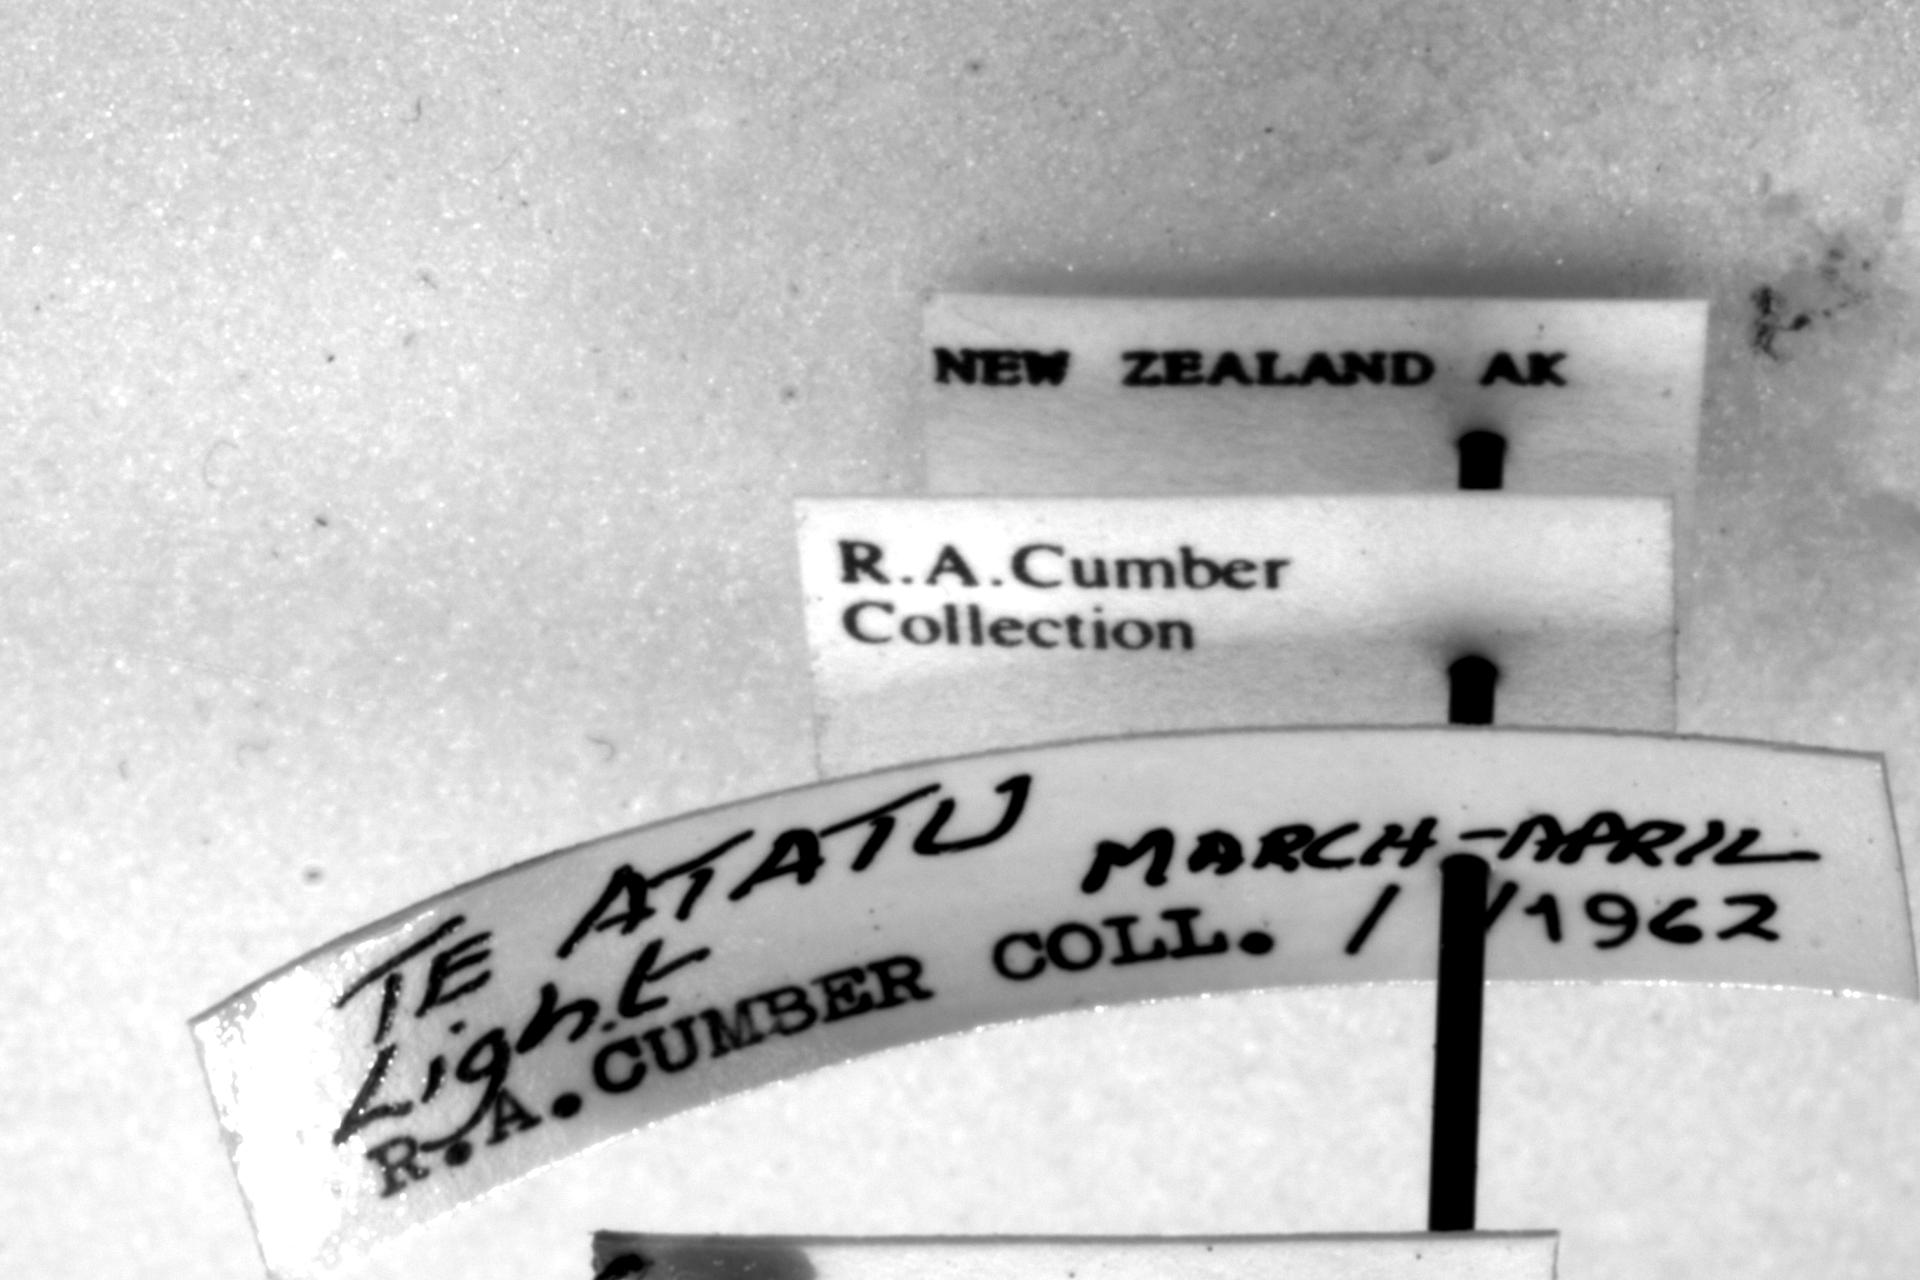 NEW ZEALAND AK
R.A.Cumber
Collection
TE ATATU MARCH-APRIL
Light
R.A.CUMBER COLL. / /1962